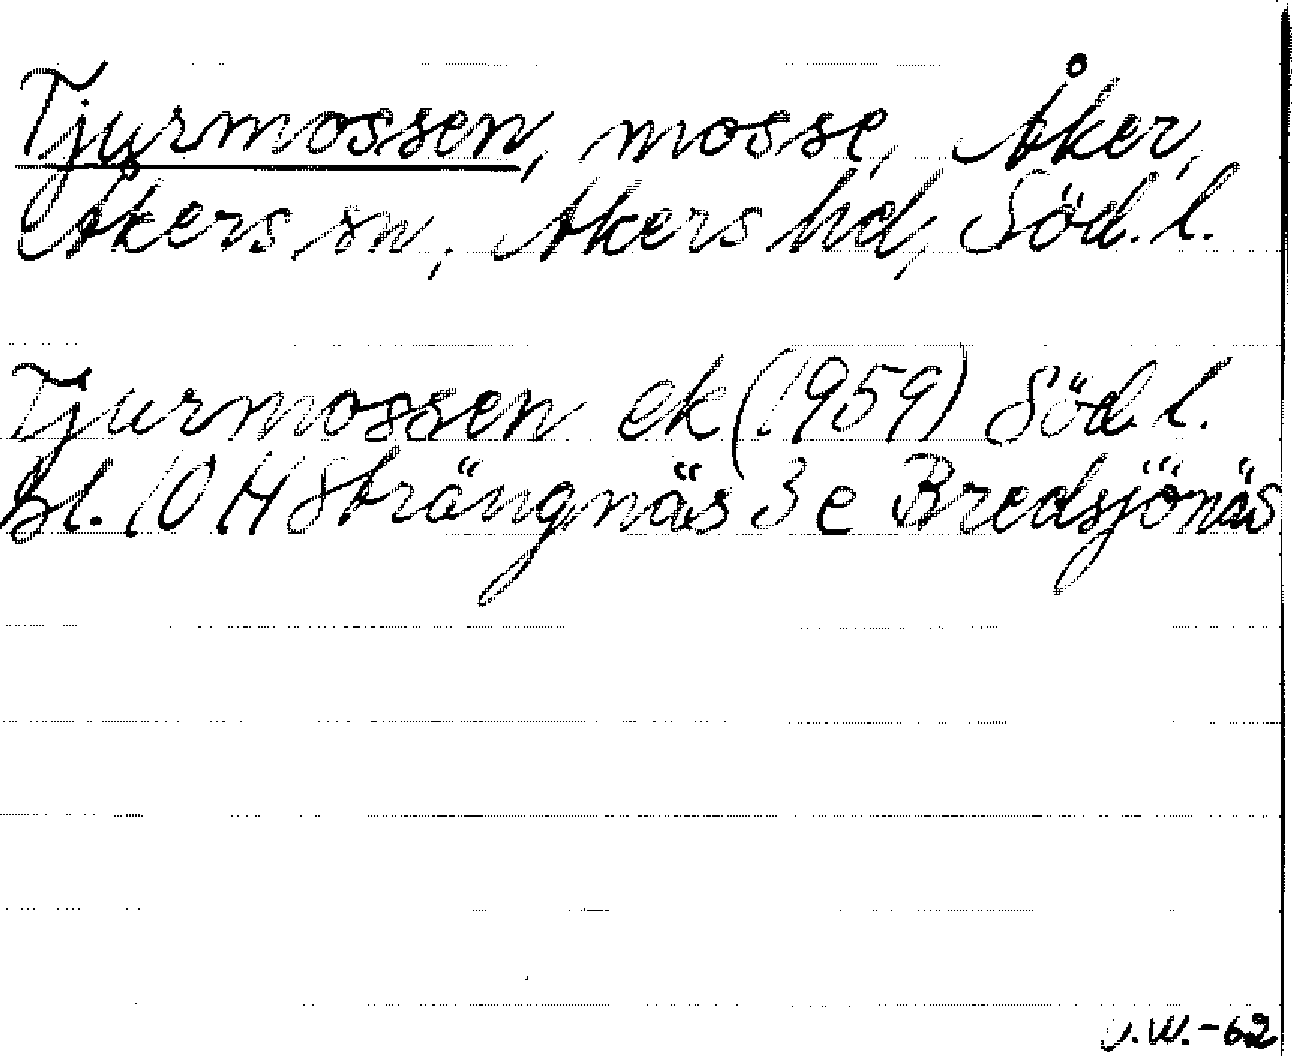 Tjurmossen, mosse, Åker,
Åkers sn, Åkers hd, Söd. l.
Tjurmossen ek (1959) Söd. l.
bl. 10 H Strängnäs 3 e Bredsjönäs
V.W.-62